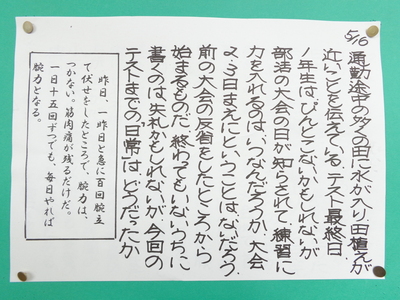 5/16
通勤途中の多くの田に水が入り、田植えが
近いことを伝えている。テスト最終日。
1年生は、ぴんとこないかもしれないが
部活の大会の日が知らされて、練習に
力を入れるのは、いつなんだろうか。大会
2・3日まえにということは、ないだろう。
前の大会の反省をしたところから
始まるものだ。終わてもいないうちに
書くのは、失礼かもしれないが、今回の
テストまでの「日常」は、どうだったか
昨日、一昨日と急に百回腕立
て伏せをしたところで、腕力は、
つかない。筋肉痛が残るだけだ。
一日十五回ずつでも、毎日やれば
腕力となる。